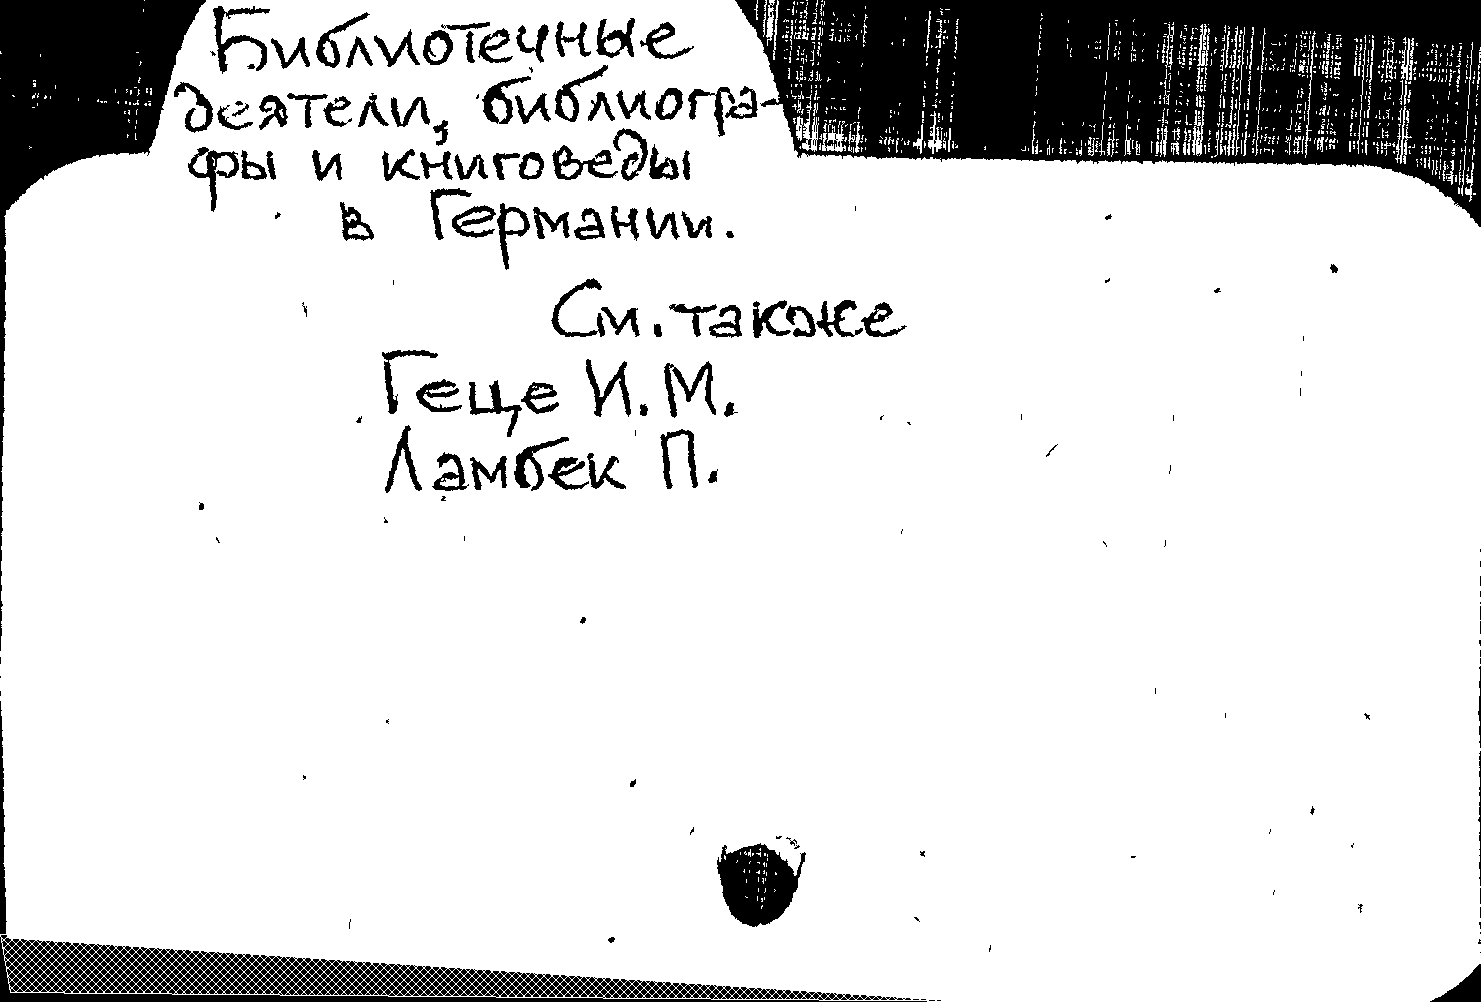 Библиотечные
деятели, библиогра-
фы и книговеды
в Германии.
См. также
Геце И.М.
Ламбек П.